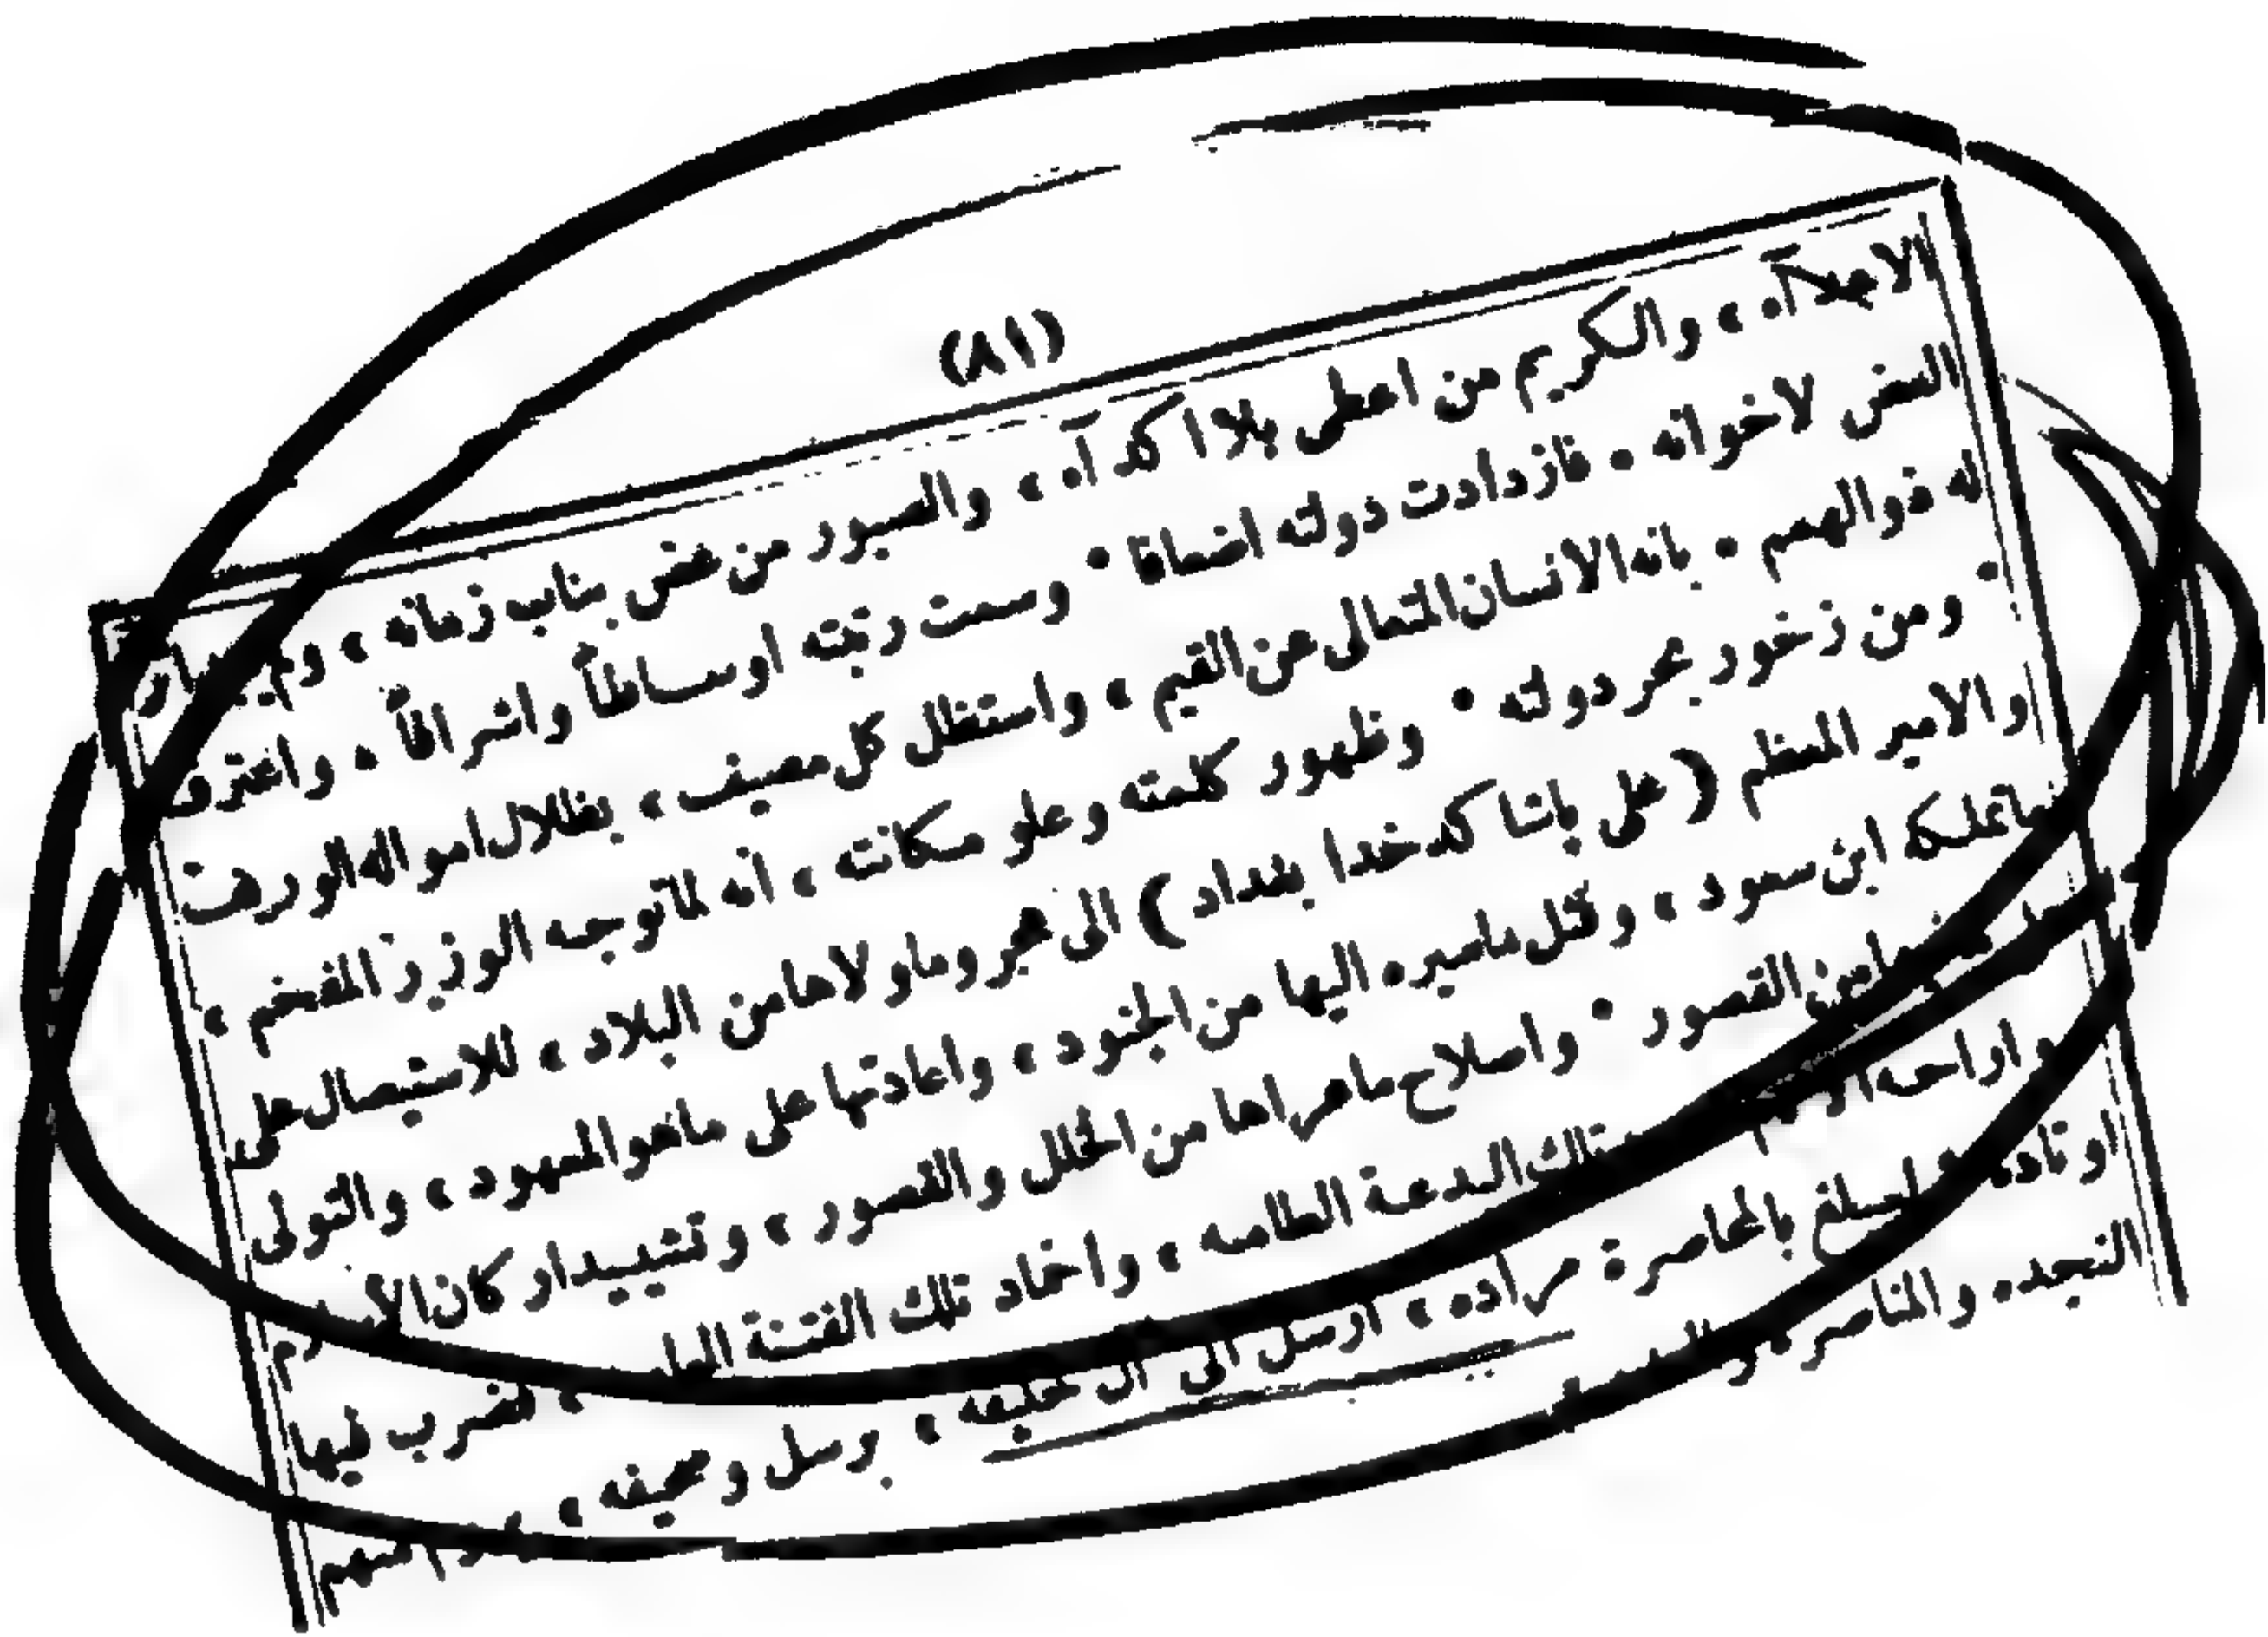 (٨١)
الاجلاّء ، والكريم من اعطى بلا اكدآء ، والصبور من غض بناب زمانه ،
السن لاخوانه . فازدادت دولته اضعافا . وسمت رتبته اوساطاً واشرافاً . واعترف
له ذوالهمم . بانه الانسان الخالى عن القيم ، واستظل كل مصيف ، بظلال امواله الوريف
. ومن زخور بحر دولته . وظهور كلمته وعلو مكانته ، أنه لما توجه الوزير المفخم ،
والامير المعظم (على باشا كدخدا بغداد) الى هجر وماولاها من البلاد ، للاستيصال على
ماتملكه ابن سعود ، وقتل ماسيره اليها من الجنود ، واعادتها على ماهو المعهود ، والتولى
القصور . واصلاح ماعراها من الخلل والقصور ، وتشييد اركان
واراحة تلك البدعة الطامه ، واخماد تلك الفتنة ، فضرب فيها
اوتاده بالمحاصرة مراده ، ارسل الى ال خليفه ، برسل وصحيفه ،
النجده والمناصره